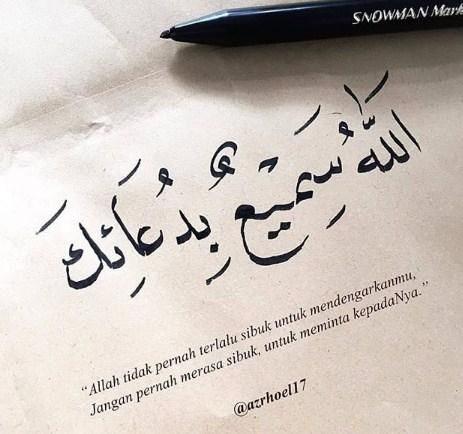 SNOWMAN Mark
اللَّهُ سَمِيْعٌ بِدُعَائِكَ
“Allah tidak pernah terlalu sibuk untuk mendengarkanmu,
Jangan pernah merasa sibuk, untuk meminta kepadaNya.”
@azrhoel17